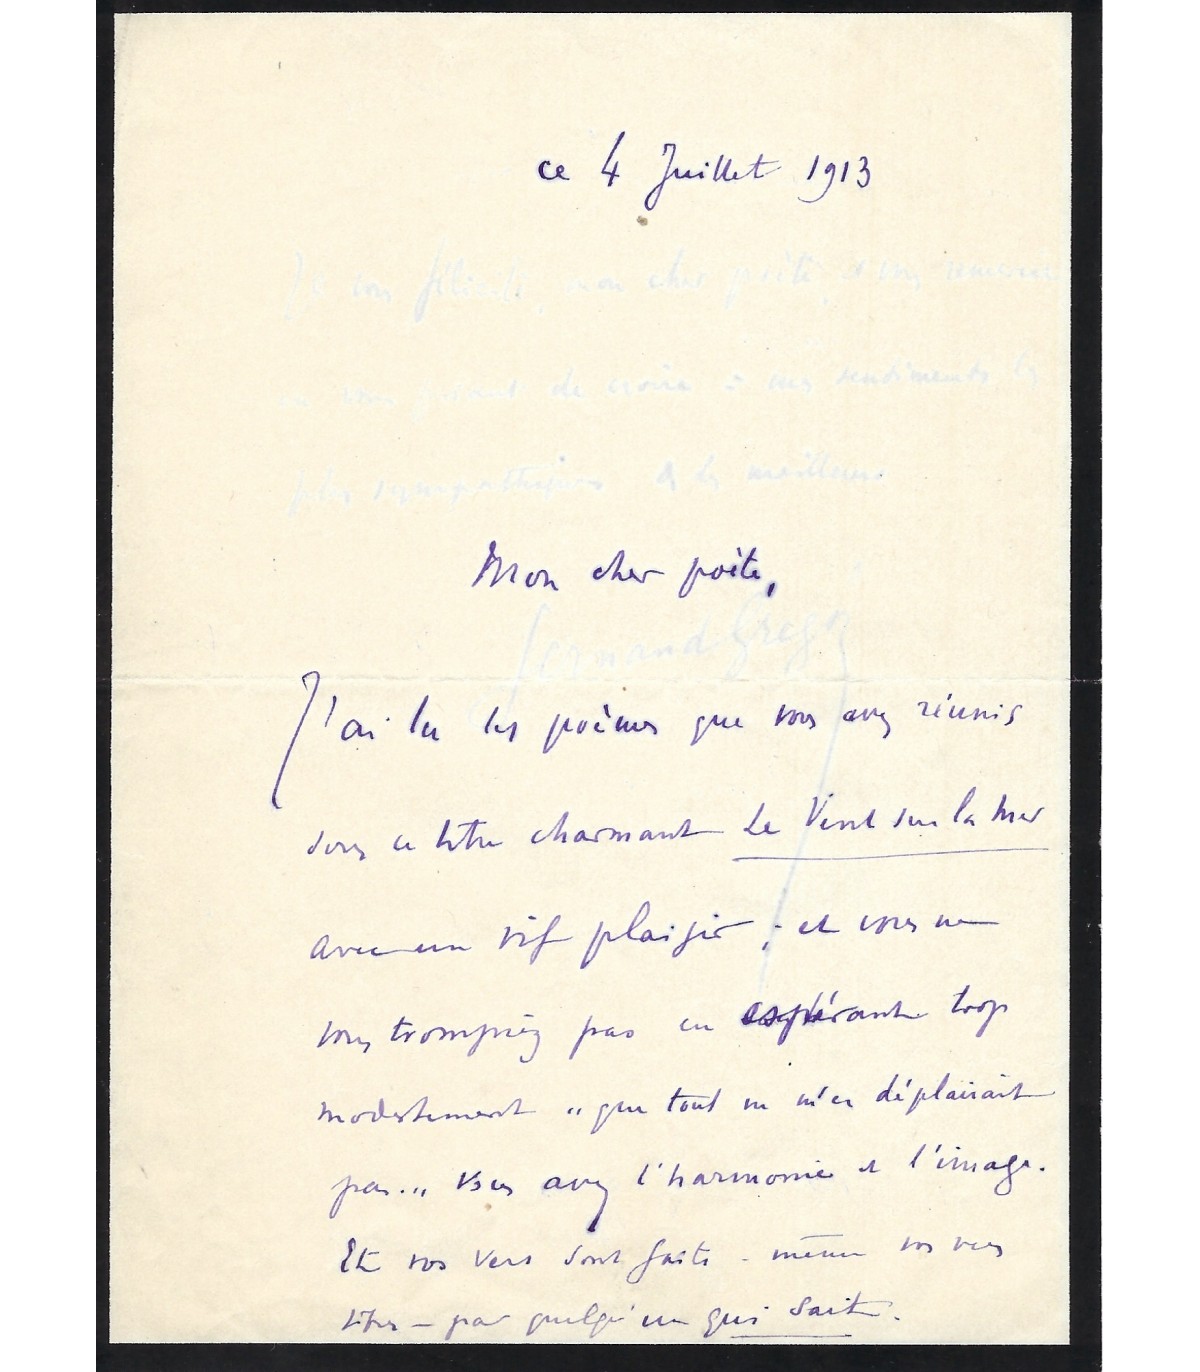 ce 4 Juillet 1913
Je vous félicite, mon cher poète, et vous remercie
en vous priant de croire à mes sentiments les
plus sympathiques et les meilleurs
Mon cher poète,
Fernand Gregh
J'ai lu les poèmes que vous avez réunis
sous ce titre charmant Le Vent sur la Mer
avec un vif plaisir ; et vous ne
vous trompiez pas en espérant trop
modestement „ que tout ne m'en déplairait
pas.„ Vous avez l'harmonie et l'image.
Et vos vers sont faits - même vos vers
libres - par quelqu'un qui sait.